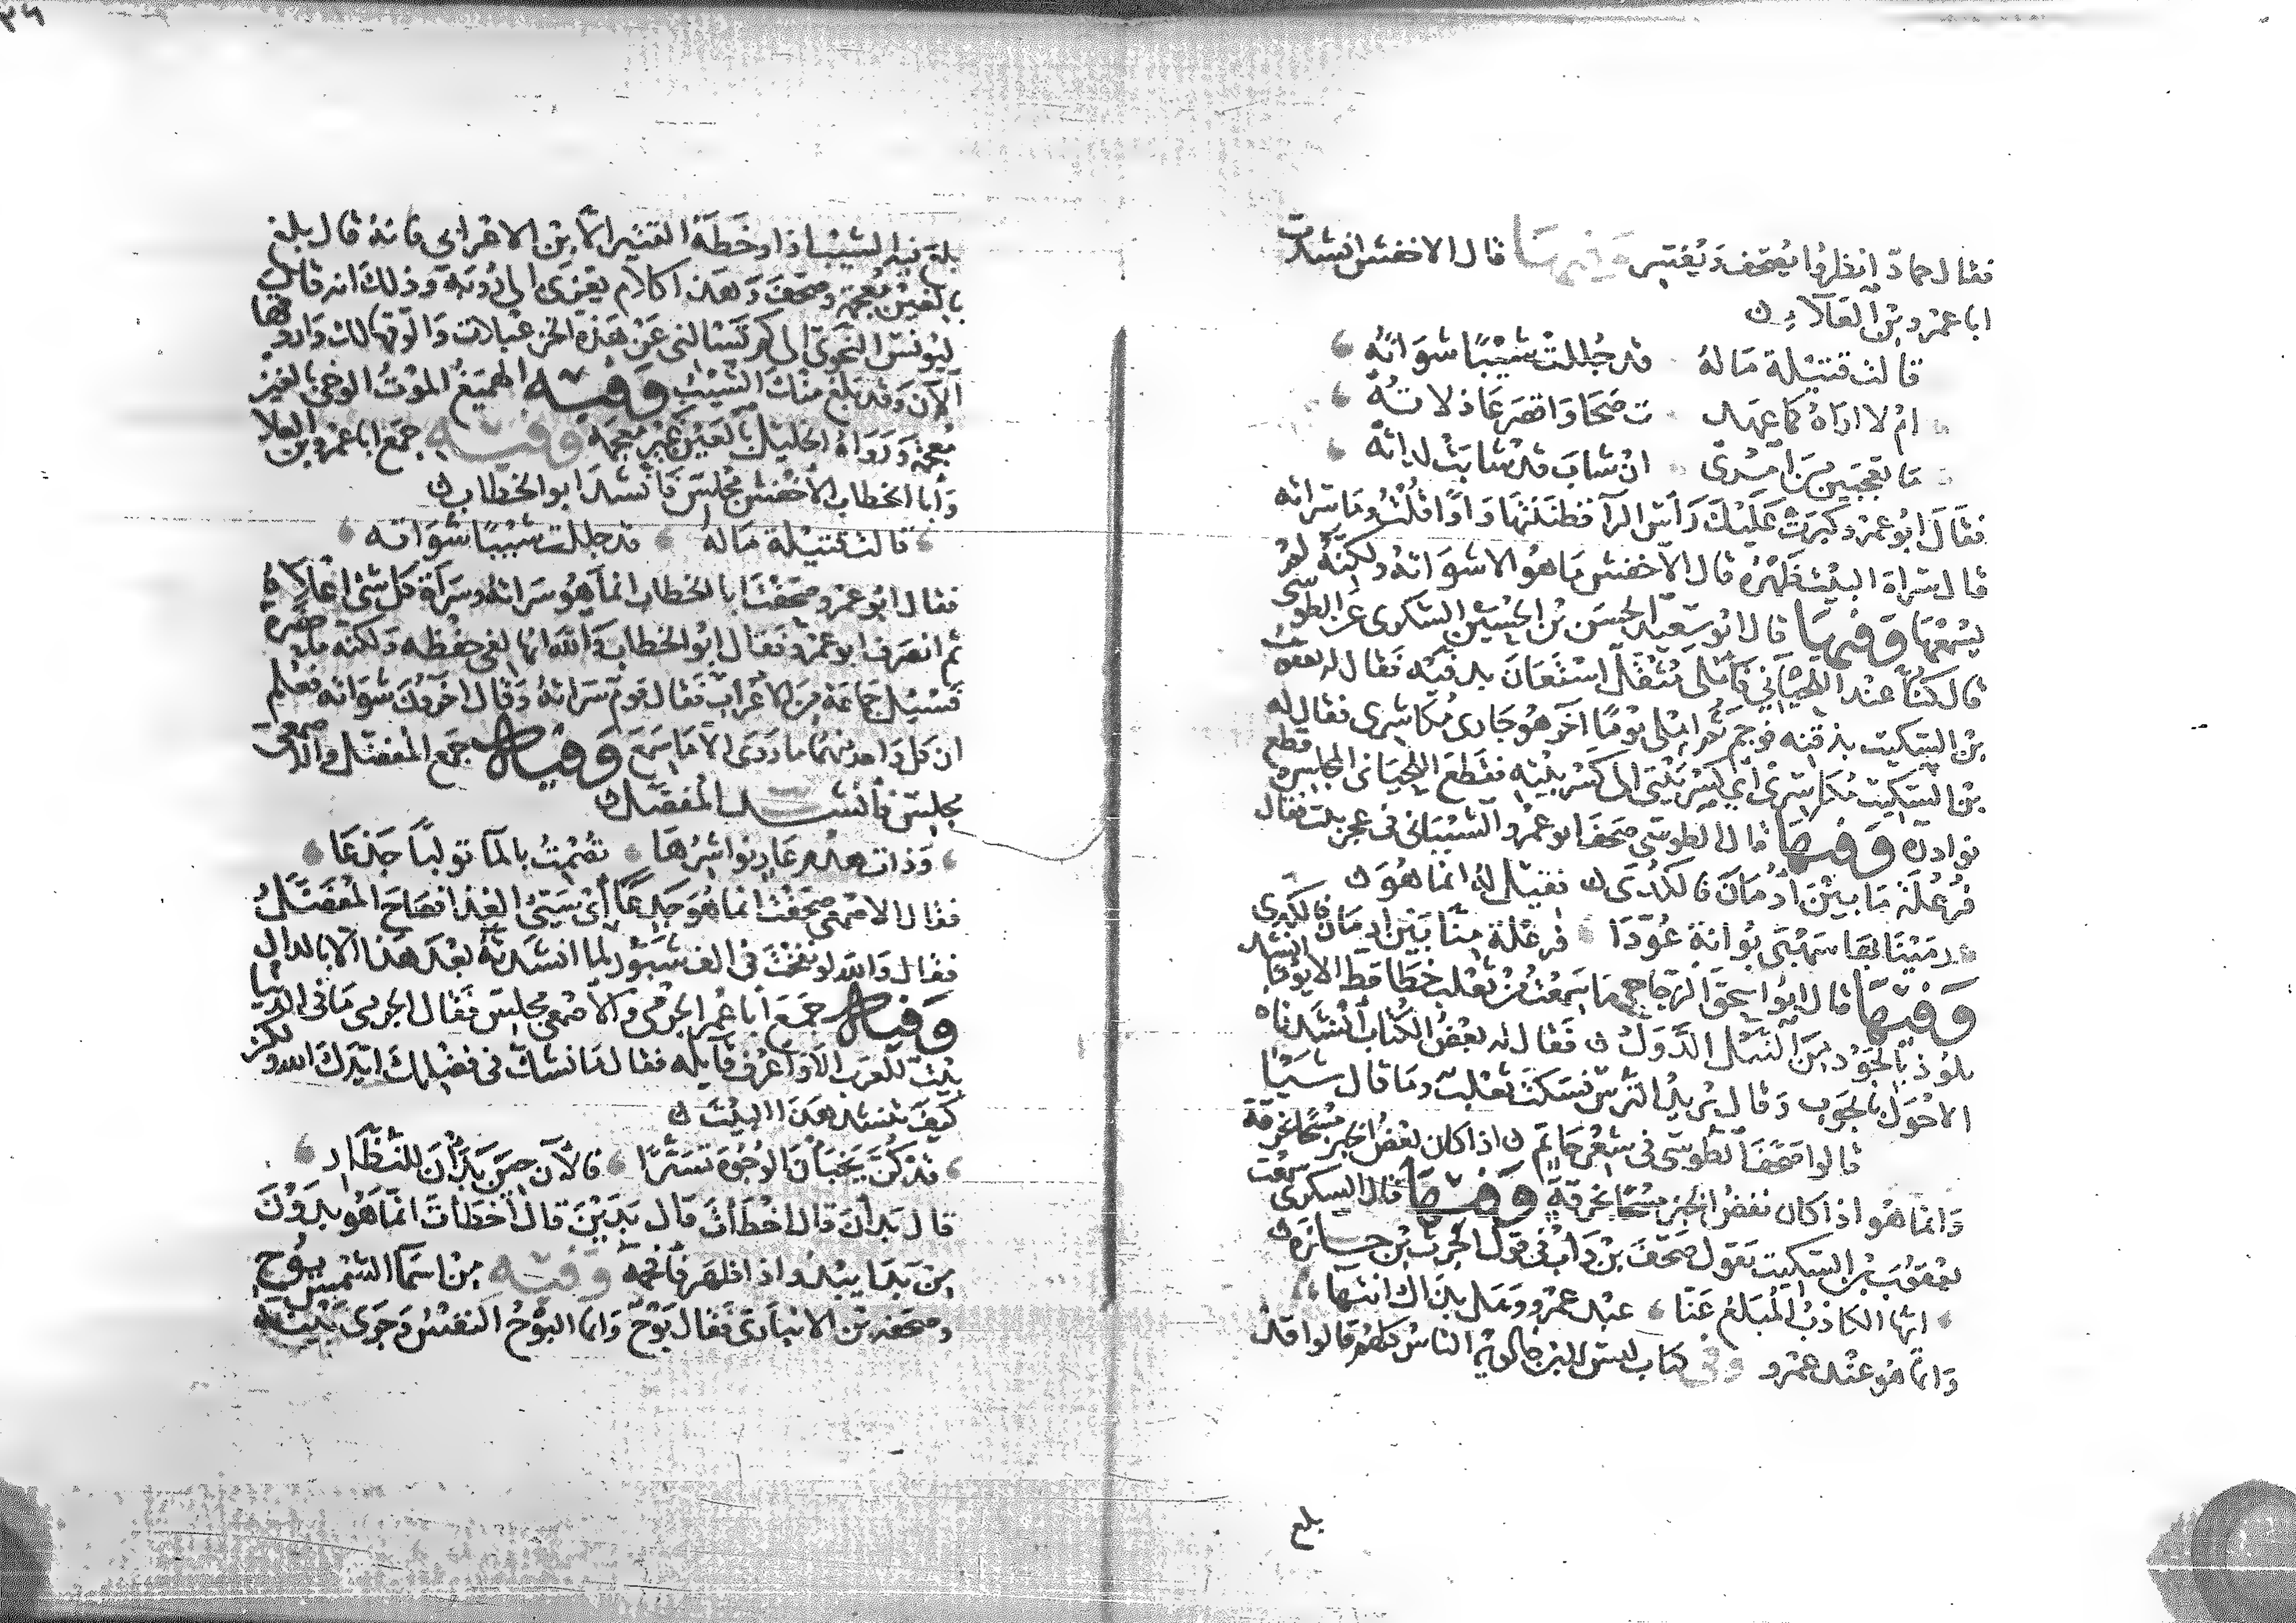 فقال حماد انظروا يصحف ويفسر وفيها قال الاخفش انشدت
ابا عمرو بن العلاء
قالت قتيلة ماله قد جللت شيبا شواته
ام لا اراه كما عهدت صحا واقصر عاذلاته
ما تعجبين من امرئ ان شاب قد شابت لداته
فقال ابو عمرو كبرت عليك راس الرا فظننتها واوا قلت وما سراته
قال سراة البيت ظهره قال الاخفش ما هو الا شواته ولكنه لم
يسمعها وفيها قال ابو سعيد الحسن بن الحسين السكرى عن الطوسى
قال كنا عند اللحياني فاملى مثقل استعان بدفيه فقال له يعقوب
بن السكيت بذقنه فوجم ثم املى يوما اخر هو جارى مكاشرى فقال له
بن السكيت مكاسرى اى كسر بيتى الى كسر بيته فقطع اللحيانى المجلس وقطع
نوادره وفيها قال الطوسى صحف ابو عمرو الشيبانى فى عجز بيت فقال
فرعلة ما بين ادمان فالكدى فقيل له انما هو
رمينا بها شهبى بوانة عودا فرعلة منا بين ادمان فالكدى
وفيها قال ابو اسحق الزجاجى ما سمعت من ثعلب خطا قط الا يوما انشد
يلوذ بالجود من النبل الدول فقال له بعض الكتاب انشدناه
الاحول بالجوب وقال يريد الترس فسكت ثعلب وما قال شيا
قالوا صحف الطوسى فى شعر حاتم اذا كان بعض الخبز مسحا بخرقة
وانما هو اذا كان نفض الخبز مسحا بخرقة وفيها قال السكرى سمعت
يعقوب بن السكيت يقول صحف بن داب فى قول الحرث بن حلزة
ايها الكاذب المبلغ عنا عبد عمرو وهل بذاك انتها
وانما هو عند عمرو وفى كتاب ليس لابن خالويه الناس كلهم قالوا قد
بلع
بلع فيه الشيب اذا وخطه القتير الا بن الاعرابى فانه قال بلغ
بالغين معجمة وصحف وهذا الكلام يعزى الى روبة وذلك انه قال
ليونس النحوى الى كم تسالنى عن هذه الخزعبلات والوقها لك واروقها
الان وقد بلغ منك الشيب وفيه الهميغ الموت الوحى بالغين
معجمة ورواه الخليل بالعين غير معجمة وفيه جمع ابا عمرو بن العلا
وابا الخطاب الاخفش مجلس فانشد ابو الخطاب
قالت قتيلة ماله قد جللت شيبا شواته
فقال ابو عمرو صحفت ابا الخطاب انما هو سراته وسراة كل شى اعلاه
ثم انصرف ابو عمرو فقال ابو الخطاب والله انها لفى حفظه ولكنه ما حضره
فسئل جماعة من الاعراب فقال قوم سراته وقال اخرون شواته فعلم
ان كل واحد منهما ما روى الا ما سمع وفيه جمع المفضل والاصمعى
مجلس فانشد المفضل
وذات هدم عار نواشرها تصمت بالما تولبا جذعا
فقال الاصمعى صحفت انما هو جدعا اى سيئ الغذا فصاح المفضل
فقال والله لو نفخت فى الف شبور لما انشدته بعد هذا الا بالدال
وفيه جمع ابا عمر الجرمى والاصمعى مجلس فقال الجرمى ما فى الدنيا
بيت للعرب الا واعرف قايله فقال ما نشك فى فضلك ايدك الله ولكن
كيف تنشد هذا البيت
قد كن يخبان الوجوه تسترا فالان حين بدان للنظار
قال بدان قال اخطات قال بدين قال اخطات انما هو بدون
من بدا يبدو اذا ظهر فافحمه وفيه من اسما الشمس يوح
وصحفه بن الانبارى فقال بوح وانما البوح النفس وجرى بينه